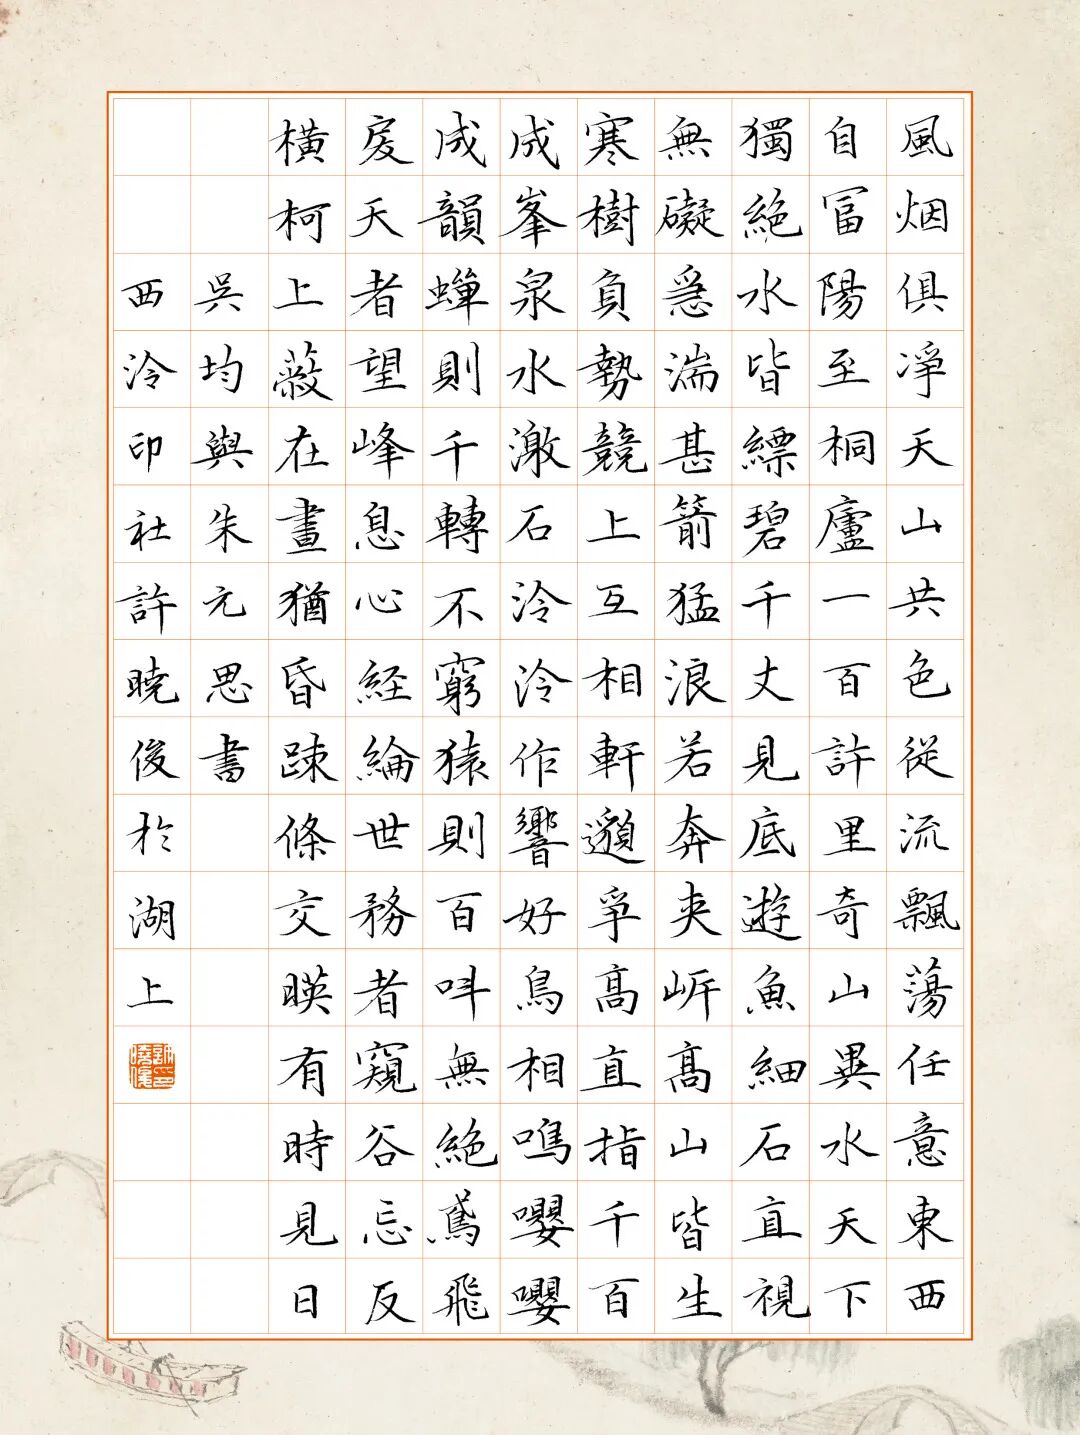 風烟俱凈天山共色從流飄蕩任意東西
自冨陽至桐廬一百許里奇山異水天下
獨絶水皆縹碧千丈見底遊魚細石直視
無礙急湍甚箭猛浪若奔夾岸髙山皆生
寒樹負勢競上互相軒邈爭髙直指千百
成峯泉水激石泠泠作響好鳥相鳴嚶嚶
成韻蟬則千轉不窮猿則百呌無絶鳶飛
戾天者望峰息心経綸世務者窺谷忘反
橫柯上蔽在晝猶昏踈條交暎有時見日
吳均與朱元思書
西泠印社許曉俊於湖上
許印曉俊